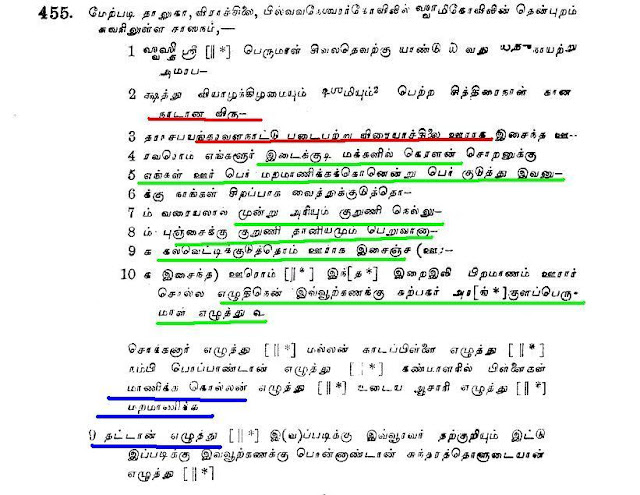 455. மேற்படி தாலுகா, விராச்சிலை, பில்வவனேஸ்வரர்கோவிலில் ஸ்வாமிகோவிலின் தென்புறம்
சுவரிலுள்ள சாஸநம்,—
1 ஸ்வஸ்தி ஸ்ரீ [‖*] பெருமாள் சிவலதெவற்கு யாண்டு ௰ வது
அமரப—
2 க்ஷத்து வியாழக்கிழமையும் பெற்ற சித்திரைநாள் கான
நாடான விரு—
3 தராசபயங்கரவளநாட்டு படைபற்று விரையாச்சிலை ஊராக இசைந்த ஊ-
4 ரவரொம் எங்களூர் இடைக்குடி மக்களில் கெரளன் சொறனுக்கு
5 எங்கள் ஊர் பெர் மறமாணிக்கக்கொனென்று பெர் குடுத்து இவனு—
6 க்கு நாங்கள் சிறப்பாக வைத்துக்குடுத்தொ—
7 ம் வரையலால் முன்று அரியும் குறுணி நெல்லு—
8 ம் புஞ்சைக்கு குறுணி தானியமும் பெறுவான—
9 க கல்வெட்டிக்குடுத்தொம் ஊராக இசைஞ்ச (ஊ;—
10 க இசைந்த) ஊரொம் [‖*] இந்[த*] இறைஇலி பிறமாணம் ஊரார்
சொல்ல எழுதினென் இவ்வூற்கணக்கு கற்பகர் அர[ங்*]குளப்பெரு-
மாள் எழுத்து உ
சொக்கனார் எழுத்து [‖*] மல்லன் காடப்பிள்ளை எழுத்து [‖*]
நம்பி பொப்பாண்டான் எழுத்து [‖*] கண்மாளரில் பிள்ளைகள்
மாணிக்க கொல்லன் எழுத்து [‖*] உடைய ஆசாரி எழுத்து [‖*]
மறமாணிக்க
9 தட்டான் எழுத்து [‖*] இ(வ)ப்படிக்கு இவ்வூரவர் தற்குறியும் இட்டு
இப்படிக்கு இவ்வூற்கணக்கு பொன்னாண்டான் சுந்தரத்தொளுடையான்
எழுத்து [‖*]